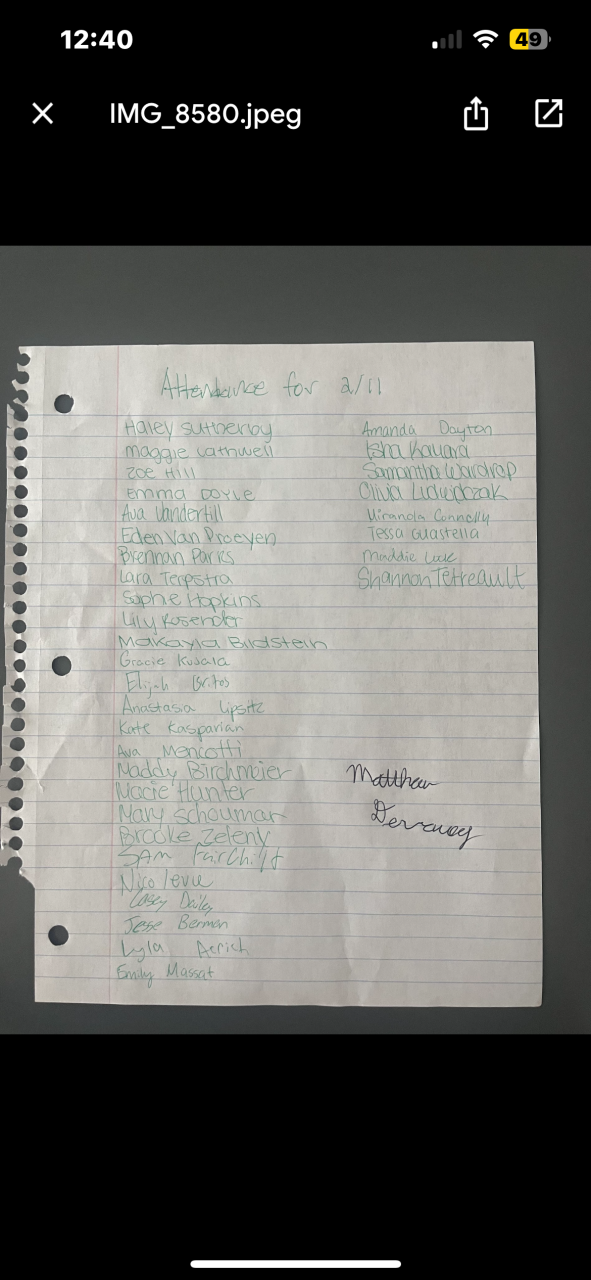 12:40
49
IMG_8580.jpeg
Attendance for 2/11
Haley Sutherby
Maggie Cathwell
Zoe Hill
Emma Doyle
Ava Vandertill
Eden Van Proeyen
Brennan Parks
Lara Terpstra
Sophie Hopkins
Lily Rosender
Makayla Bildstein
Gracie Kujala
Elijah
Anastasia Lipsitz
Kate Kasparian
Ava Mencotti
Maddy Birchmeier
Macie Hunter
Mary Schoumar
Brooke Zeleny
Sam Fairchild
Nico
Casey Dailey
Jesse Berman
Lyla
Emily Massat
Amanda Dayton
Isha
Samantha Wardrop
Olivia Ludwiczak
Miranda Connolly
Tessa Guastella
Maddie
Shannon Tetreault
Matthew